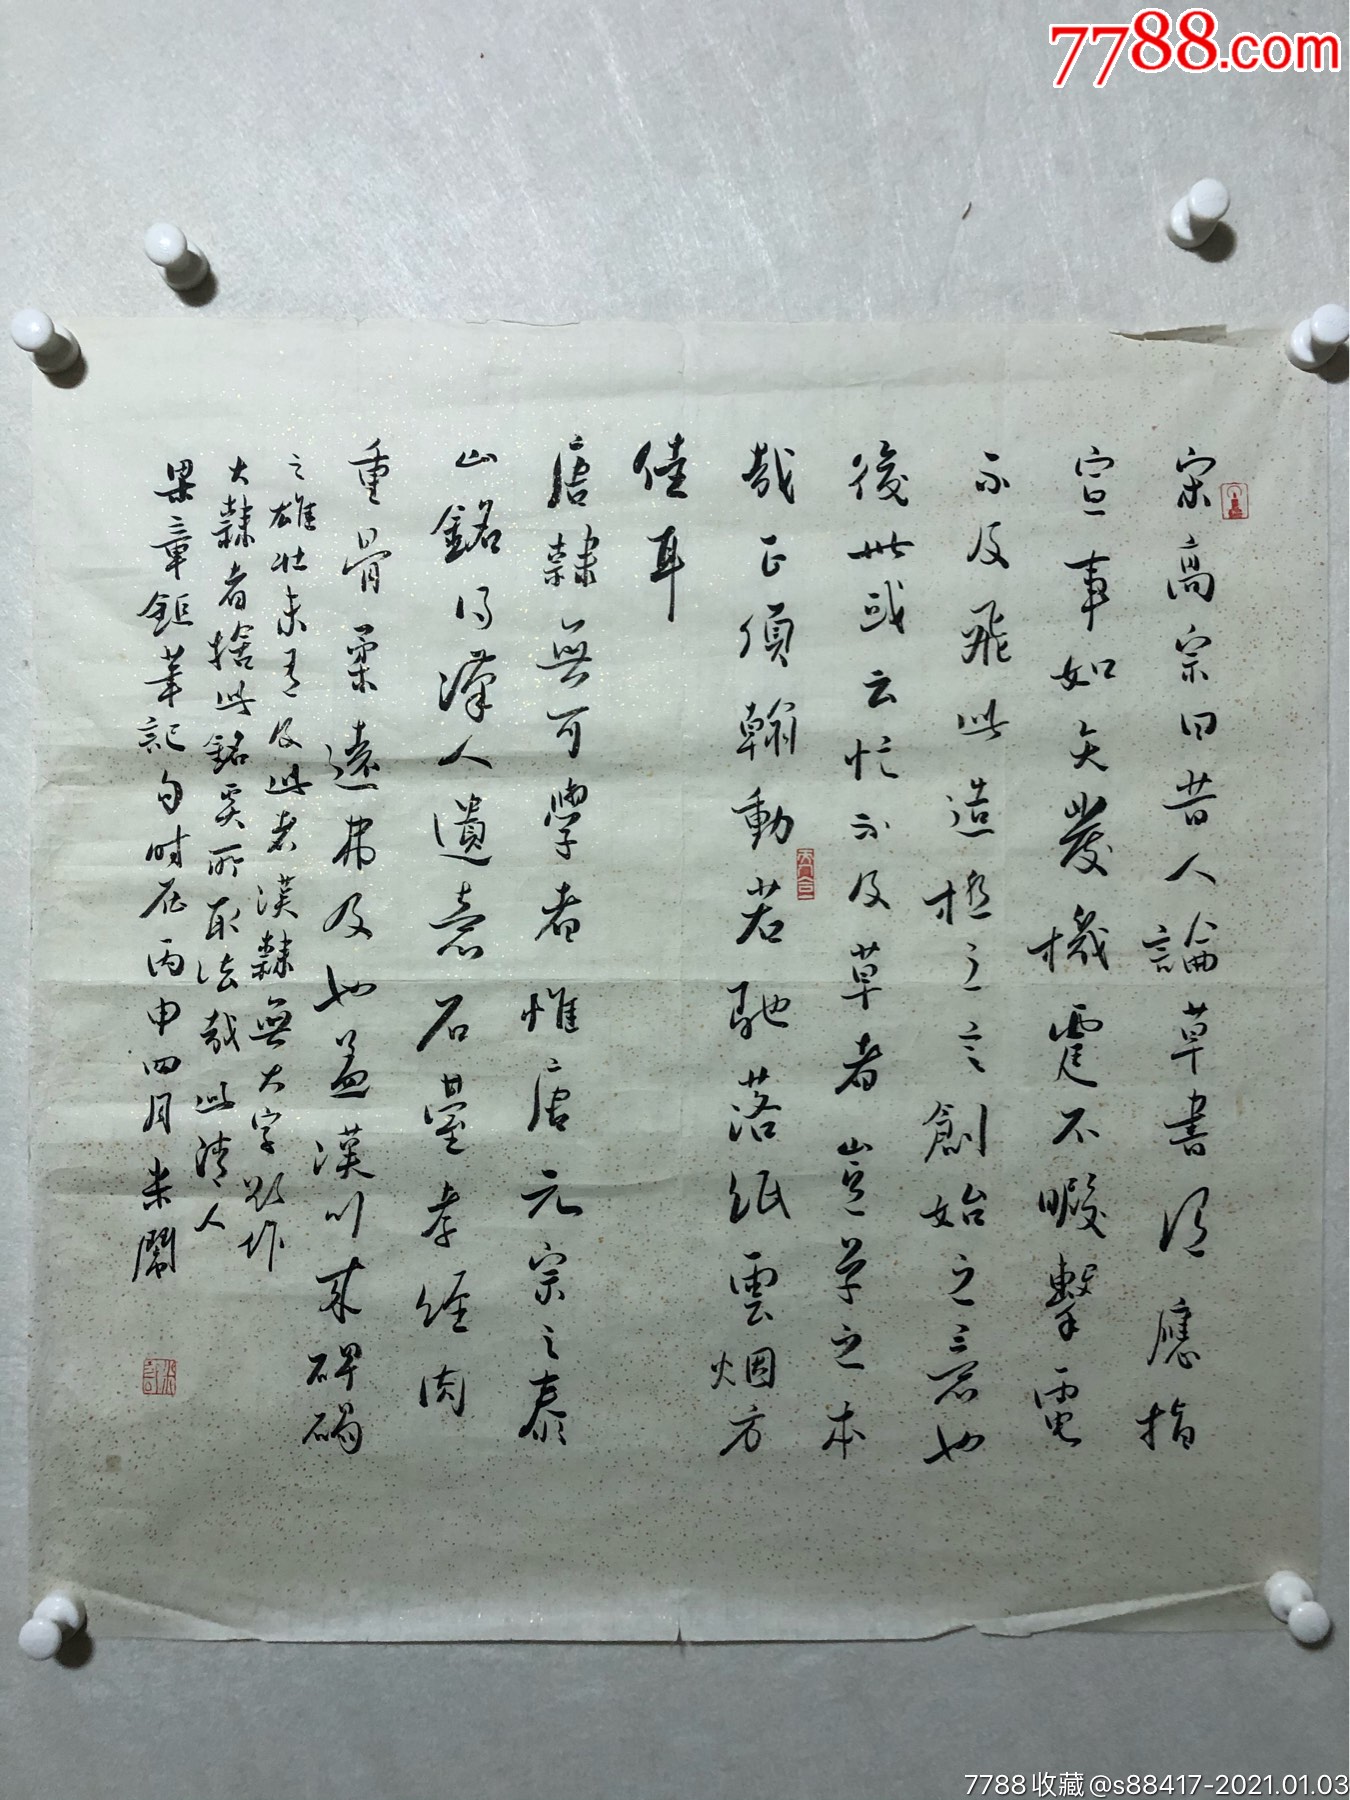 7788.com
宋高宗曰昔人論草書得應指
宣事如矢發機霆不暇擊電
不及飛此造極之言創始之意也
後世或云忙不及草者豈草之本
哉正須翰動若馳落紙雲烟方
佳耳
唐隸無可學者惟唐元宗之泰
山銘得漢人遺意石臺孝經肉
重骨柔遠弗及也蓋漢以來碑碣
之雄壯未有及此者漢隸無大字欲作
大隸者捨此銘奚所取法哉此清人
梁章鉅筆記句时在丙申四月
7788收藏@s88417-2021.01.03